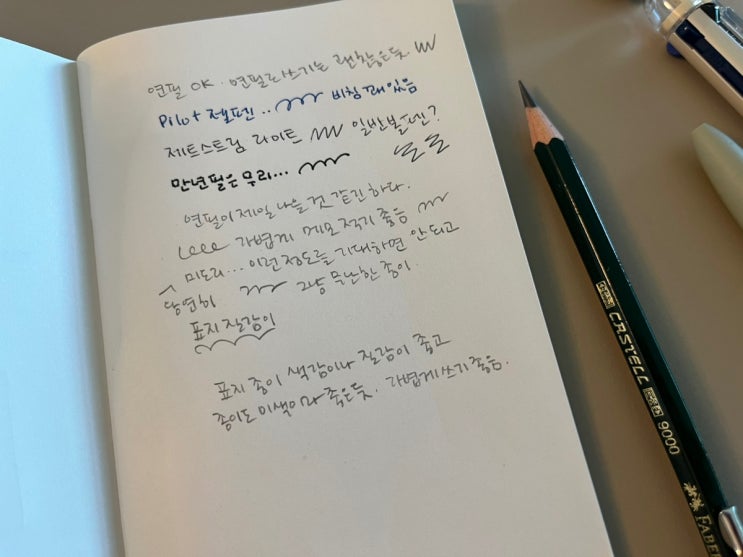 연필 OK. 연필라 쓰기는 괜찮은듯
Pilot 젤펜.. 비침 꽤있음
제트스트림 라이트 일반볼펜?
만년필은 무리...
연필이 제일 나을 것 같긴 하다.
가볍게 메모 적기 좋음
미도리... 이런 정도를 기대하면 안 되고
당연히 그냥 무난한 종이
표지 질감이
표지 종이 색감이나 질감이 좋고
종이도 미색이라 좋은듯. 가볍게 쓰기 좋음.
CASTELL 9000
FABER